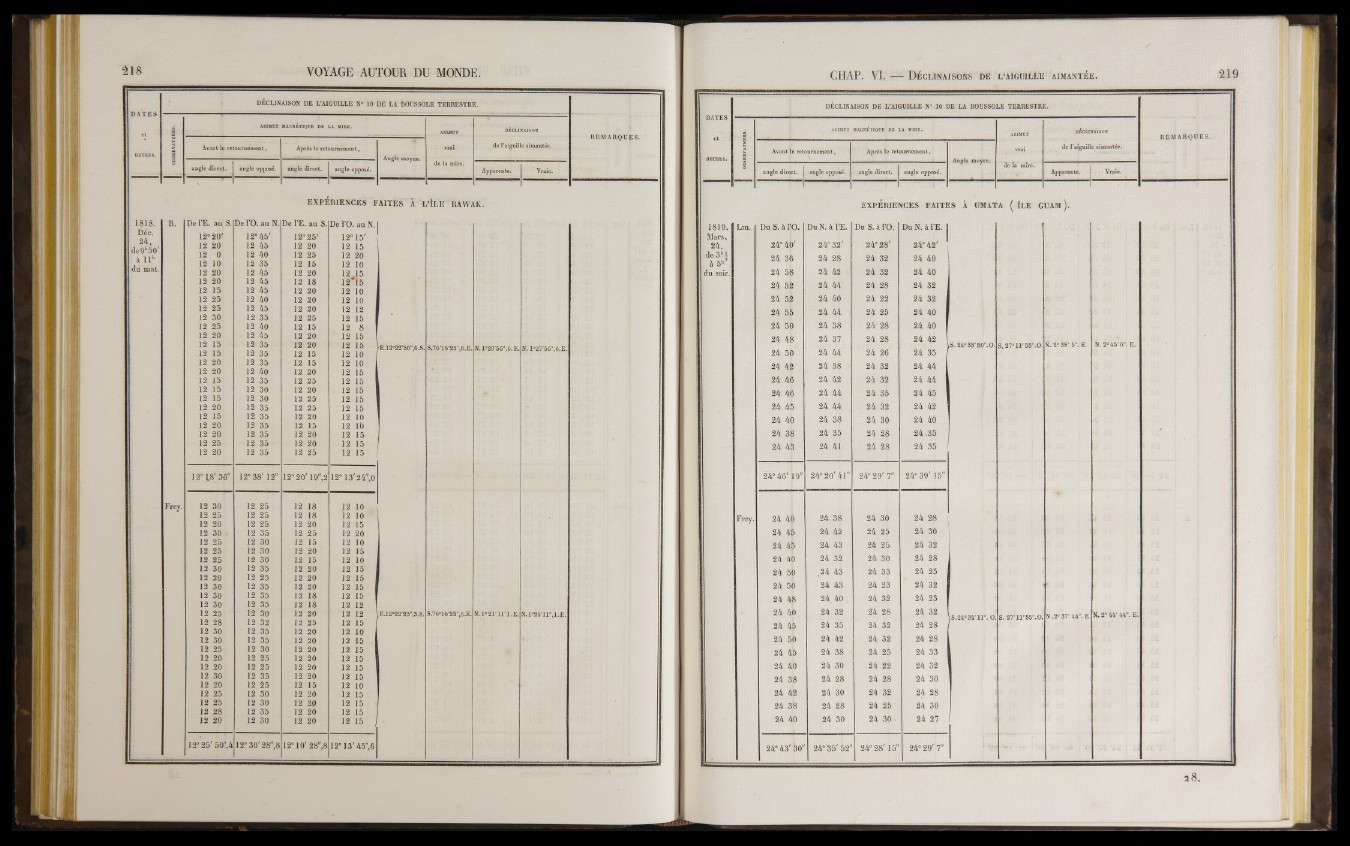 218 VOYAGE AUTOUR DU MONDE.
DATES et HEURES.
OBSERVATEURS.
DÉCLINAISON DE L'AIGUILLE N° 10 DE LA BOUSSOLE TERRESTRE.
AZIMUT MAGNÉTIQUE DE LA MIRE.
Avant le retournement, Après le retournement,
angle direct. angle opposé. angle direct. angle opposé.
Angle moyen.
AZIMUT vrai de la mire.
DÉCLINAISON de l'aiguille aimantée.
Apparente. Vraie.
REMARQUES.
EXPÉRIENCES FAITES À L'ÎLE RAWAK.
1818. Déc. 24, de 9h 50' à 11h du mat.
B. De l'E. au S. De l'O. au N. De l'E. au S. De l'O. au N.
12° 20' 12° 45' 12° 25' 12° 15'
12 20 12 45 12 20 12 15
12 0 12 40 12 25 12 20
12 10 12 35 12 15 12 10
12 20 12 45 12 20 12 15
12 20 12 45 12 18 12 15
12 15 12 45 12 20 12 10
12 25 12 40 12 20 12 10
12 25 12 45 12 20 12 12
12 30 12 35 12 25 12 15
12 25 12 40 12 15 12 8
12 20 12 45 12 20 12 15
12 15 12 35 12 20 12 15
12 15 12 35 12 15 12 10
12 20 12 35 12 15 12 10
12 20 12 40 12 20 12 15
12 15 12 35 12 25 12 15
12 15 12 30 12 20 12 15
12 15 12 30 12 25 12 15
12 20 12 35 12 25 12 15
12 15 12 35 12 20 12 10
12 20 12 35 12 15 12 10
12 20 12 35 12 20 12 15
12 25 12 35 12 20 12 15
12 20 12 35 12 25 12 15
12° 18' 36" 12° 38' 12" 12° 20' 10",2 12° 13' 24",0
Frey.
12 30 12 25 12 18 12 10
12 25 12 25 12 18 12 10
12 20 12 25 12 20 12 15
12 30 12 35 12 25 12 20
12 25 12 30 12 15 12 10
12 25 12 30 12 20 12 15
12 25 12 30 12 15 12 10
12 30 12 35 12 20 12 15
12 20 12 25 12 20 12 15
12 30 12 35 12 20 12 15
12 30 12 35 12 18 12 15
12 30 12 35 12 18 12 12
12 25 12 30 12 20 12 12
12 28 12 32 12 25 12 15
12 30 12 35 12 20 12 10
12 30 12 35 12 20 12 15
12 25 12 30 12 20 12 15
12 20 12 25 12 20 12 15
12 20 12 25 12 20 12 15
12 30 12 35 12 20 12 15
12 20 12 25 12 15 12 10
12 25 12 30 12 20 12 15
12 25 12 30 12 20 12 15
12 28 12 35 12 20 12 15
12 20 12 30 12 20 12 15
12° 25' 50",4 12° 30' 28",8 12° 19' 28",8 12° 13' 45",6
CHAP. VI. — DÉCLINAISONS DE L'AIGUILLE AIMANTÉE. 219
DATES et HEURES.
OBSERVATEURS.
DÉCLINAISON DE L'AIGUILLE N° 10 DE LA BOUSSOLE TERRESTRE.
AZIMUT MAGNÉTIQUE DE LA MIRE.
Avant le retournement, Après le retournement,
angle direct. angle opposé. angle direct. angle opposé.
Angle moyen.
AZIMUT vrai de la mire.
DÉCLINAISON de l'aiguille aimantée.
Apparente. Vraie.
REMARQUES.
EXPÉRIENCES FAITES À UMATA ( ÎLE GUAM ).
1819. Mars. 24. de 3h ½ à 5h du soir.
Lm. Du S. à l'O. Du N. à l'E. Du S. à l'O. Du N. à l'E.
24° 40' 24° 32' 24° 28' 24° 42'
24 36 24 28 24 32 24 40
24 58 24 42 24 32 24 40
24 52 24 44 24 28 24 32
24 52 24 40 24 22 24 32
24 55 24 44 24 25 24 40
24 50 24 38 24 28 24 40
24 48 24 37 24 28 24 42
S. 27° 11' 55". O. N. 2° 38' 5". E. N. 2° 45' 6". E.
24 50 24 44 24 26 24 35
24 42 24 38 24 32 24 44
24 46 24 42 24 32 24 44
24 46 24 44 24 35 24 45
24 45 24 44 24 32 24 42
24 40 24 38 24 30 24 40
24 38 24 35 24 28 24 35
24 43 24 41 24 28 24 35
24° 46' 19" 24° 20' 41" 24° 29' 7" 24° 39' 15"
Frey.
24 40 24 38 24 30 24 28
24 45 24 42 24 25 24 30
24 45 24 43 24 25 24 32
24 40 24 32 24 30 24 28
24 50 24 43 24 33 24 25
24 50 24 43 24 23 24 32
24 48 24 40 24 32 24 25
24 40 24 32 24 28 24 32
S. 24° 34' 11". O. S. 27° 11' 55". O. N. 2° 37' 44". E. N. 2° 44' 44". E.
24 45 24 35 24 32 24 28
24 50 24 42 24 32 24 28
24 45 24 38 24 25 24 33
24 40 24 30 24 22 24 32
24 38 24 28 24 28 24 30
24 42 24 30 24 32 24 28
24 38 24 28 24 25 24 30
24 40 24 30 24 30 24 27
24° 43' 30" 24° 35' 52" 24° 28' 15" 24° 29' 7"
28.